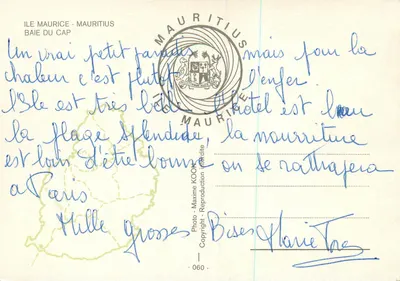 ILE MAURICE - MAURITIUS
BAIE DU CAP
MAURITIUS
MAURICE
Un vrai petit paradis mais pour la
chaleur c'est plutôt l'enfer.
l'île est très belle l'hôtel est
la plage splendide, la nourriture
est loin d'être bonne on se rattrapera
à Paris
Mille grosses Bises Marie
Photo - Maxime KOCH
Copyright - Reproduction interdite
- 060 -